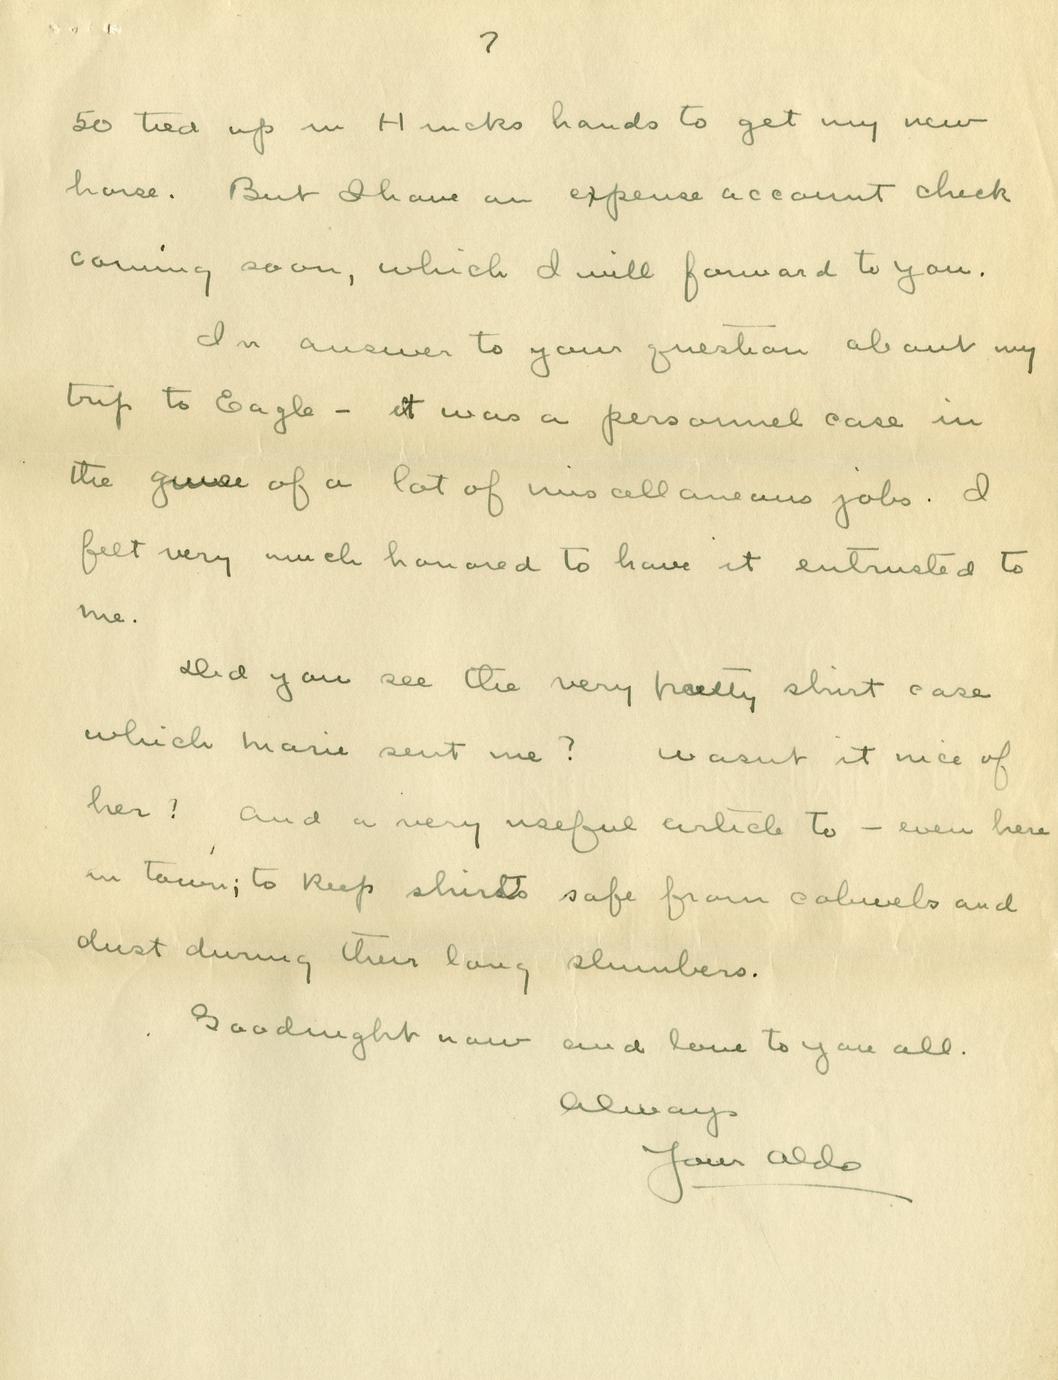 7
50 tied up in Hincks hands to get my new
horse. But I have an expense account check
coming soon, which I will forward to you.
In answer to your question about my
trip to Eagle – it was a personnel case in
the guise of a lot of miscellaneous jobs. I
felt very much honored to have it entrusted to
me.
Did you see the very pretty shirt case
which Marie sent me? Wasnt it nice of
her? And a very useful article to – even here
in town; to keep shirts safe from cobwebs and
dust during their long slumbers.
Goodnight now and love to you all.
Always
Your Aldo